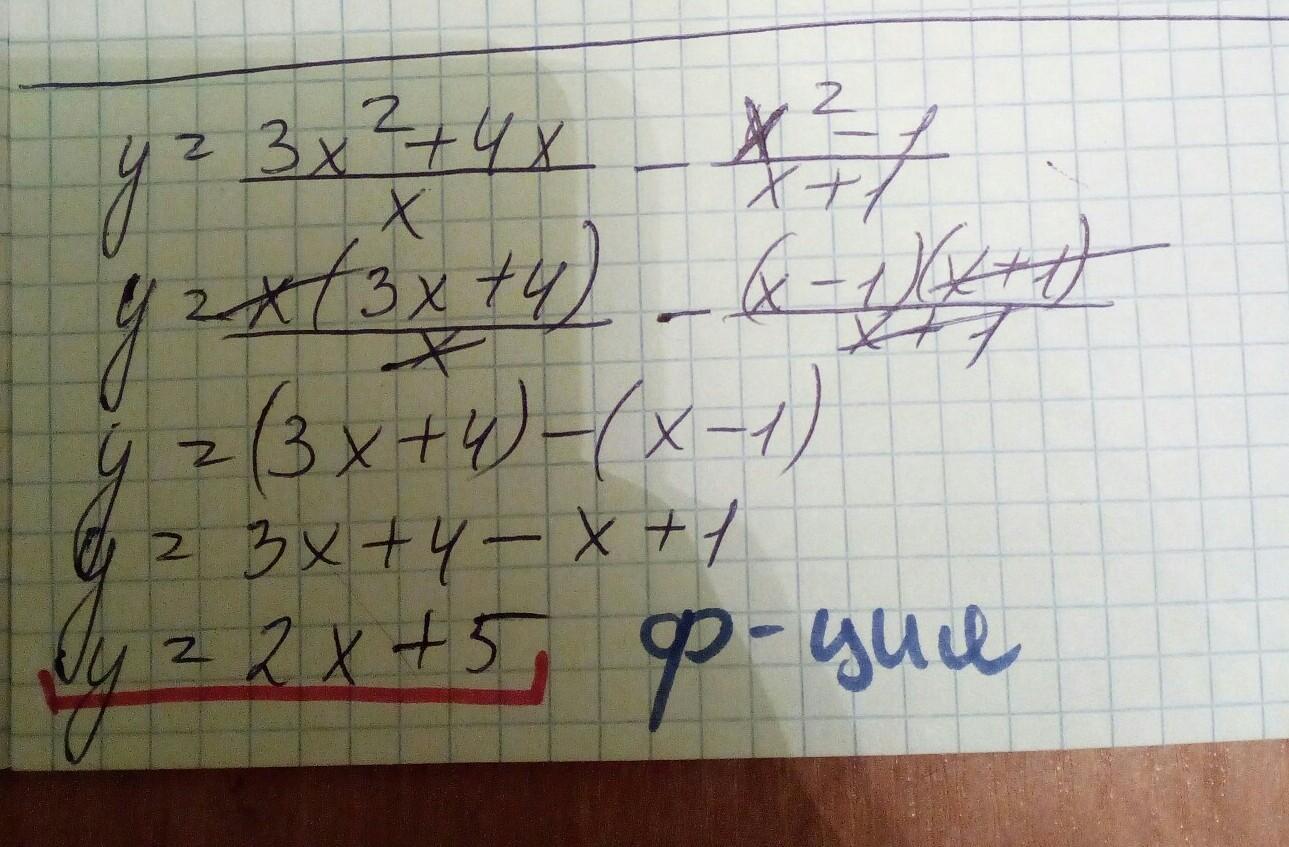 y = (3x² + 4x)/x - (x² - 1)/(x + 1)
y = x(3x + 4)/x - (x - 1)(x + 1)/(x + 1)
y = (3x + 4) - (x - 1)
y = 3x + 4 - x + 1
y = 2x + 5 ф-ция